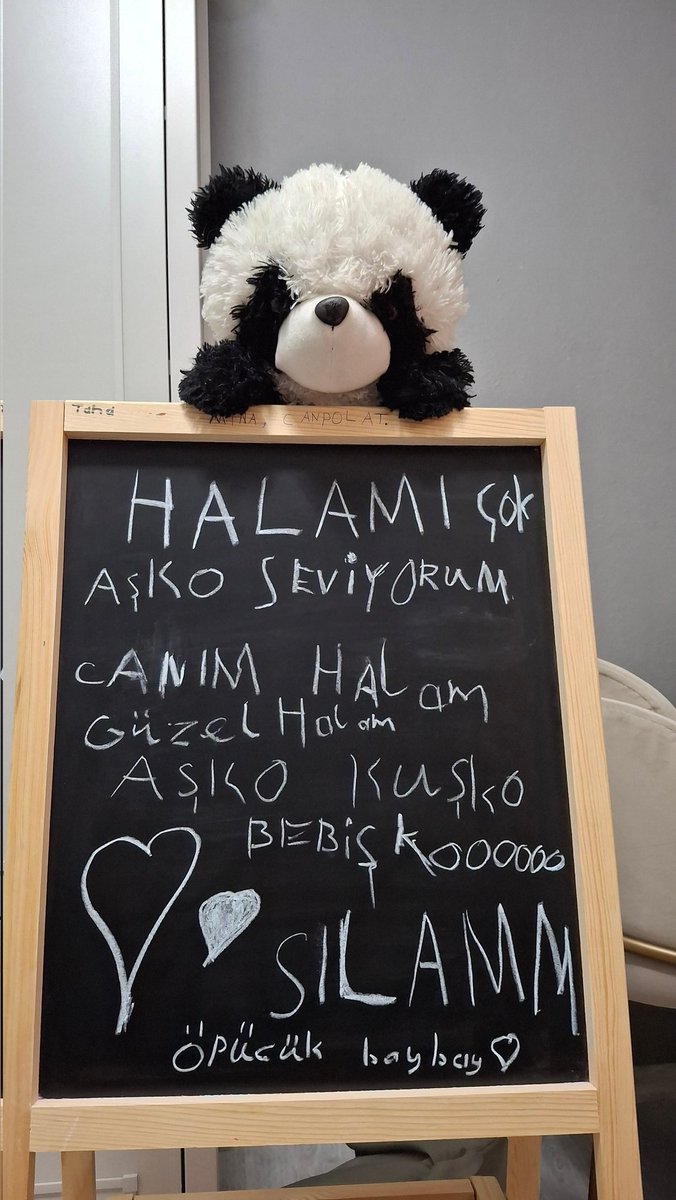 Taha
MİNA, CANPOLAT.
HALAMI çok
AŞKO SEVİYORUM
CANIM HALam
GüzeL Halam
AŞKO KUŞKO
BEBİŞKOOOOOO
SILAMM
öpücük baybay♡